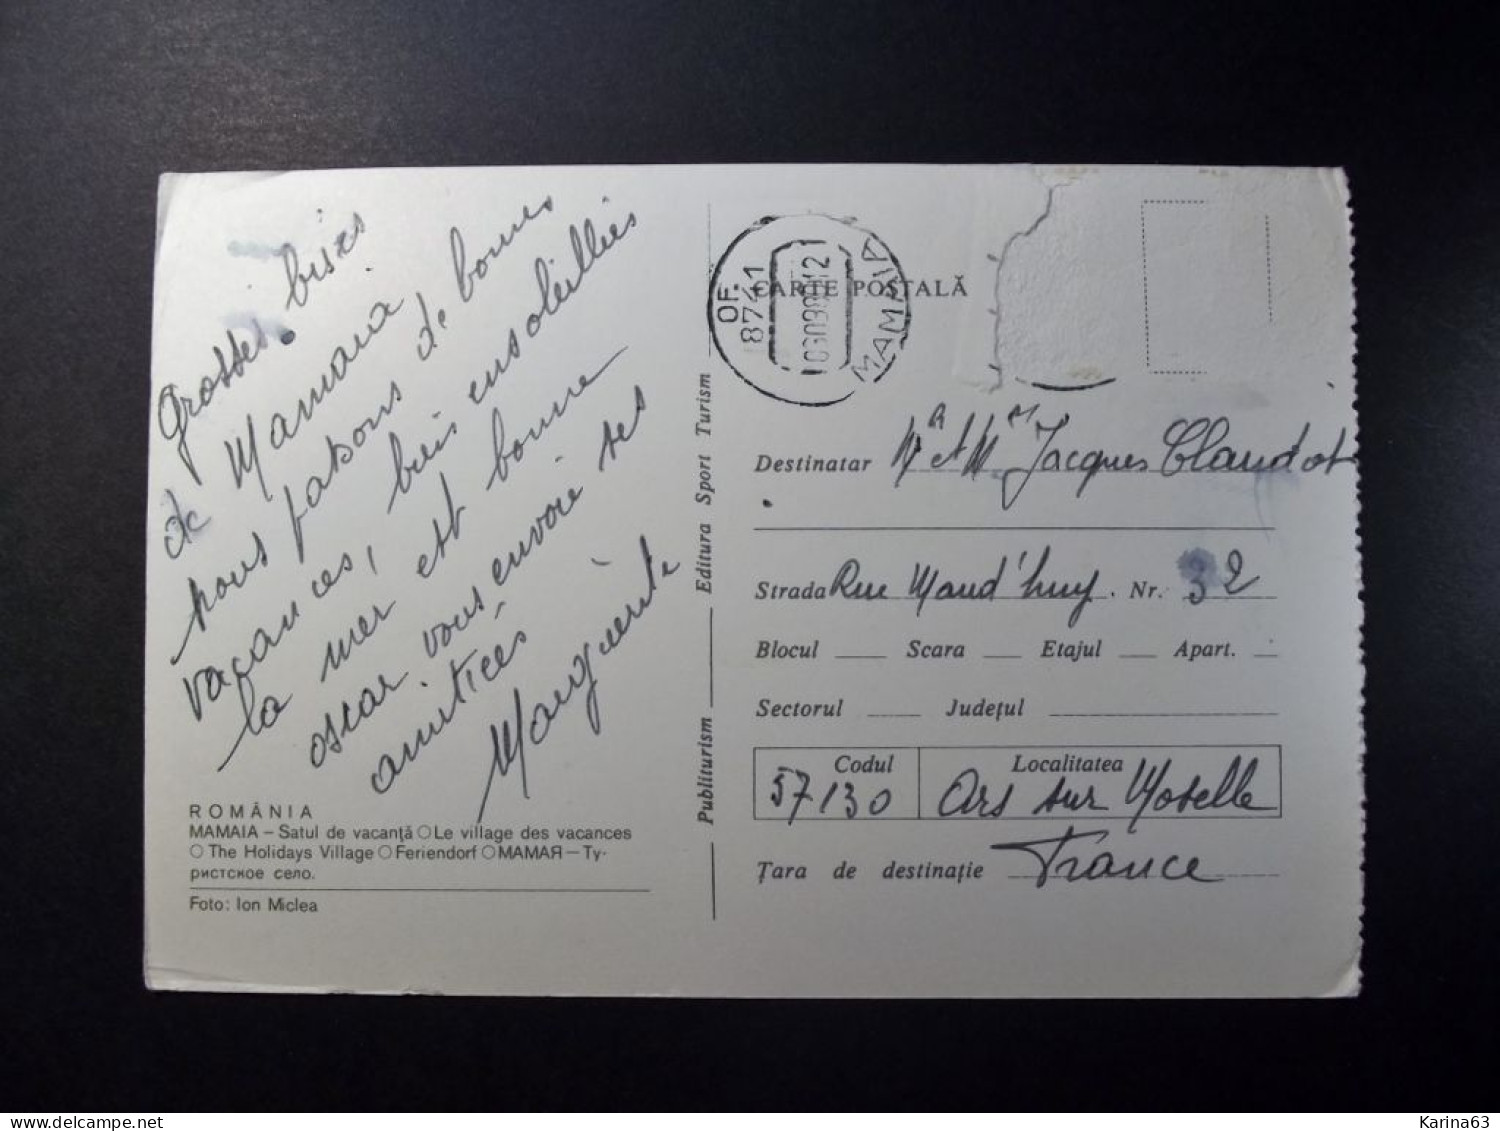 grosses bises
de Mamaia,
nous faisons de bonnes
vacances, bien ensoleillées
la mer est bonne
oscar vous envoie ses
amitiés
Marguerite
ROMÂNIA
MAMAIA – Satul de vacanță ○ Le village des vacances
○ The Holidays Village ○ Feriendorf ○ МАМАЯ – Ту-
ристское село.
Foto: Ion Miclea
Publiturism Editura Sport Turism
OF. 8741
MAMAIA
CARTE POȘTALĂ
Destinatar Mr et Mme Jacques Claudot
Strada Rue Maud'huy. Nr. 32
Blocul Scara Etajul Apart.
Sectorul Județul
Codul Localitatea
57130 Ars sur Moselle
Țara de destinație France
delcampe.net
Karina63